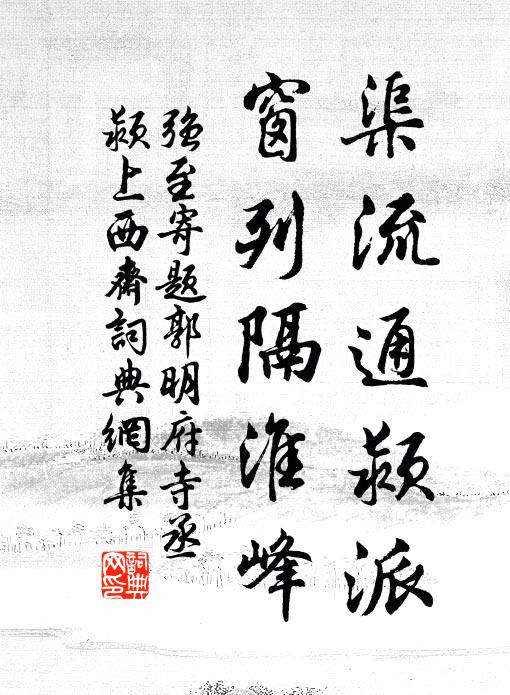 渠流通颍派
窗列隔淮峰
强至寄题郭明府寺丞
颍上西齋詞典網集
詞典网印